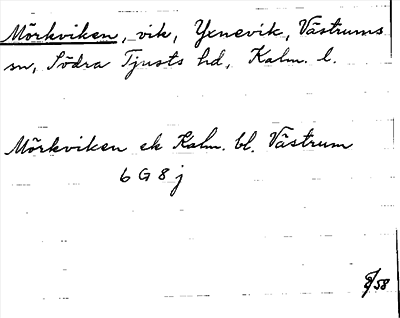 Mörkviken, vik, Yxnevik, Västrums
sn, Södra Tjusts hd, Kalm. l.
Mörkviken ek Kalm. bl. Västrum
6 G 8 j
/58